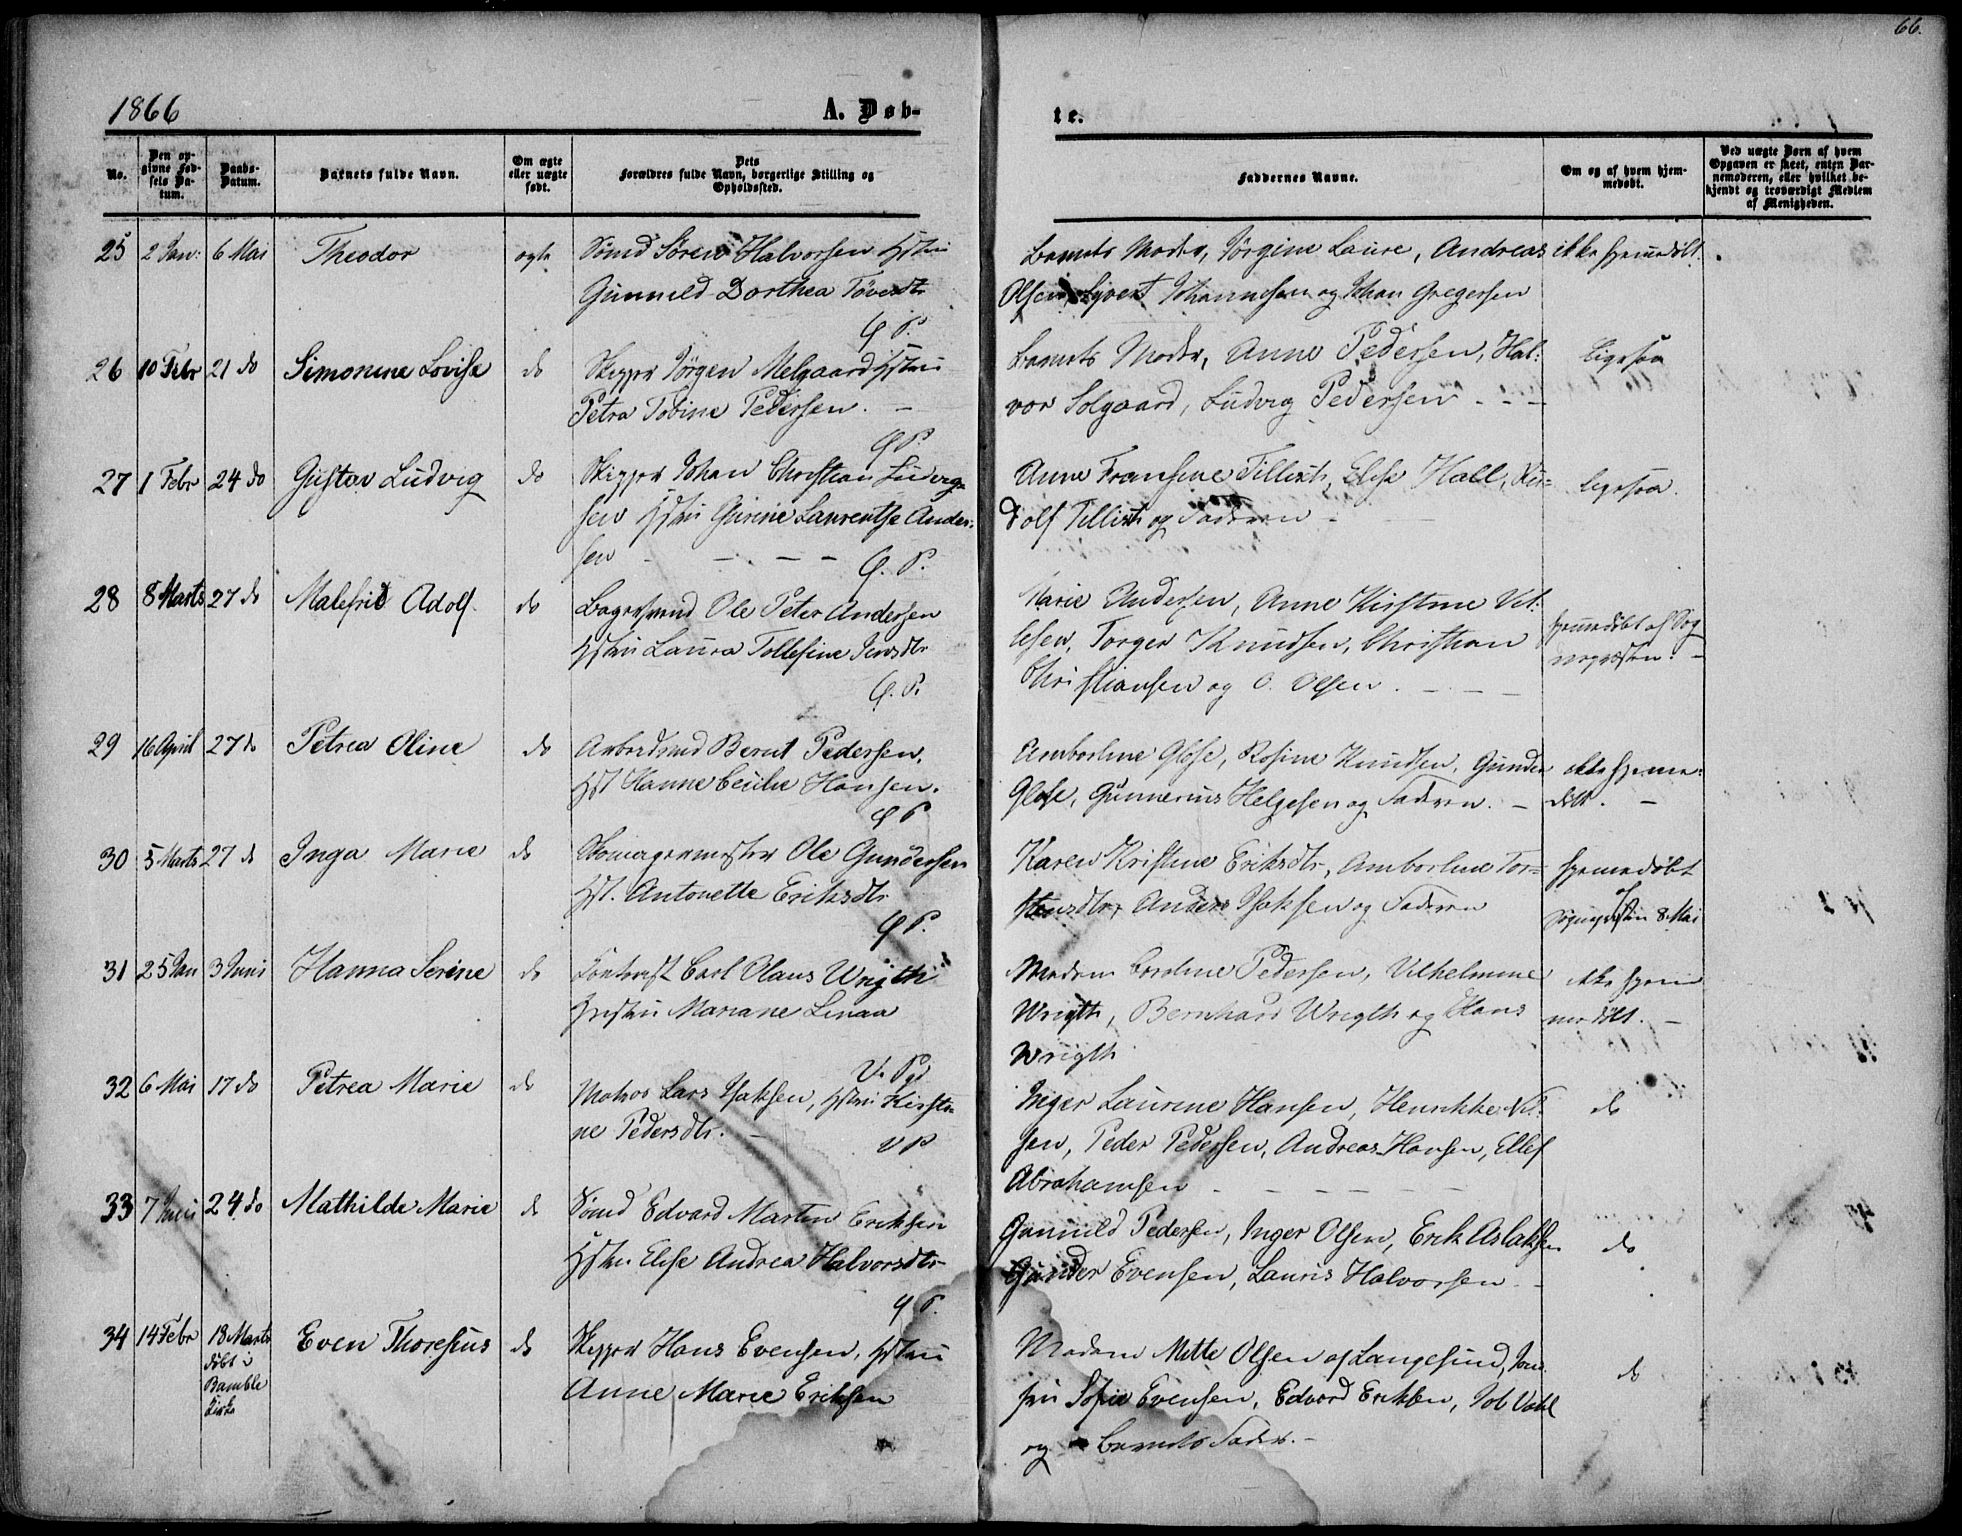 66.
1866
A. Døb-
te.
No.
Den op-
givne Fød-
sels Da-
tum.
Daabs-
Datum.
Barnets fulde Navn.
Om ægte
eller uægte
født.
Dets
Forældres fulde Navn, borgerlige Stilling og
Opholdssted.
Faddernes Navne.
Om og af hvem hjem-
medøbt.
Ved uægte Børn af hvem
Opgaven er skeet, enten Bar-
nemoderen, eller hvilket be-
kjendt og troværdigt Medlem
af Menigheden.
25 2 Jan: 6 Mai Theodor ægte Sømd Søren Halvorsen Hstru
Gunnild Dorthea
Barnets Moder, Jørgine Laure, Andreas ikke hjemmedøbt.
Olsen, Syvert Johannesen og Johan Gregersen
26 10 Febr 21 do Simonine Lovise do Skipper Jørgen Melgaard Hstru
Petra Tobine Pedersen. -
Barnets Moder, Anne Pedersen, Hal:
vor Solgaard, Ludvig Pedersen - - -
ligesaa
27 1 Febr 24 do Gustav Ludvig do Skipper Johan Christian Ludvig-
sen Hstru Gurine Laurentse Ander-
sen - - - -
Anne Fransine Tellisch, Elise Hall, Ru-
dolf og Faderen -
ligesaa.
28 8 Marts 27 do Malefrid Adolf do Bagersvend Ole Peter Andersen
Hstru Laura Tollefine Jensdtr
Marie Andersen, Anne Kirstine Vet-
lesen, Torger Knudsen, Christian
Christiansen og O. Olsen. - -
hjemmedøbt af Sog-
nepræsten. -
29 16 April 27 do Petrea Oline do Arbeidsmd Bernt Pedersen,
Hst Hanne Cecilie Hansen.
Amborline Glose, Rosine Knudsen, Gunder
Glose, Gunnerius Helgesen og Faderen. -
ikke hjemme-
døbt. -
30 5 Marts 27 do Inga Marie do Skomagermester Ole Gundersen
Hst. Antonette Eriksdtr
Karen Kristine Eriksdtr, Amborline Tor-
stensdtr, Anders Isaksen og Faderen
hjemmedøbt
af
Sognepræsten 8 Mai
31 25 Jan 3 Juni Hanna Serine do Carl Olaus Wrigth
Hustru Mariane Linaa
Madam Caroline Pedersen, Vilhelmine
Wrigth, Bernhard Wrigth og Hans
Wrigth
ikke hjem
medøbt. -
32 6 Mai 17 do Petrea Marie do Matros Lars Isaksen, Hstru Kirsti-
ne Pedersdtr. -
Inger Laurine Hansen, Henrikke Nil-
sen, Peder Pedersen, Andreas Hansen, Ellef
Abrahamsen - - - -
do
33 7 Juni 24 do Mathilde Marie do Sømd Edvard Martin Eriksen
Hstru Elise Andrea Halvorsdtr
Gunnild Pedersen, Inger Olsen, Erik Aslaksen
Gunder Evensen, Lauris Halvorsen -
do
34 14 Febr 18 Marts Even Thoresius do Skipper Hans Evensen, Hstru
døbt i
Bamble
Kirke
Anne Marie Eriksen
Madam Mette Olsen af Langesund, Jom-
fru Sofie Evensen, Edvard Eriksen, Job Vahl
og Barnets Fader. -
do